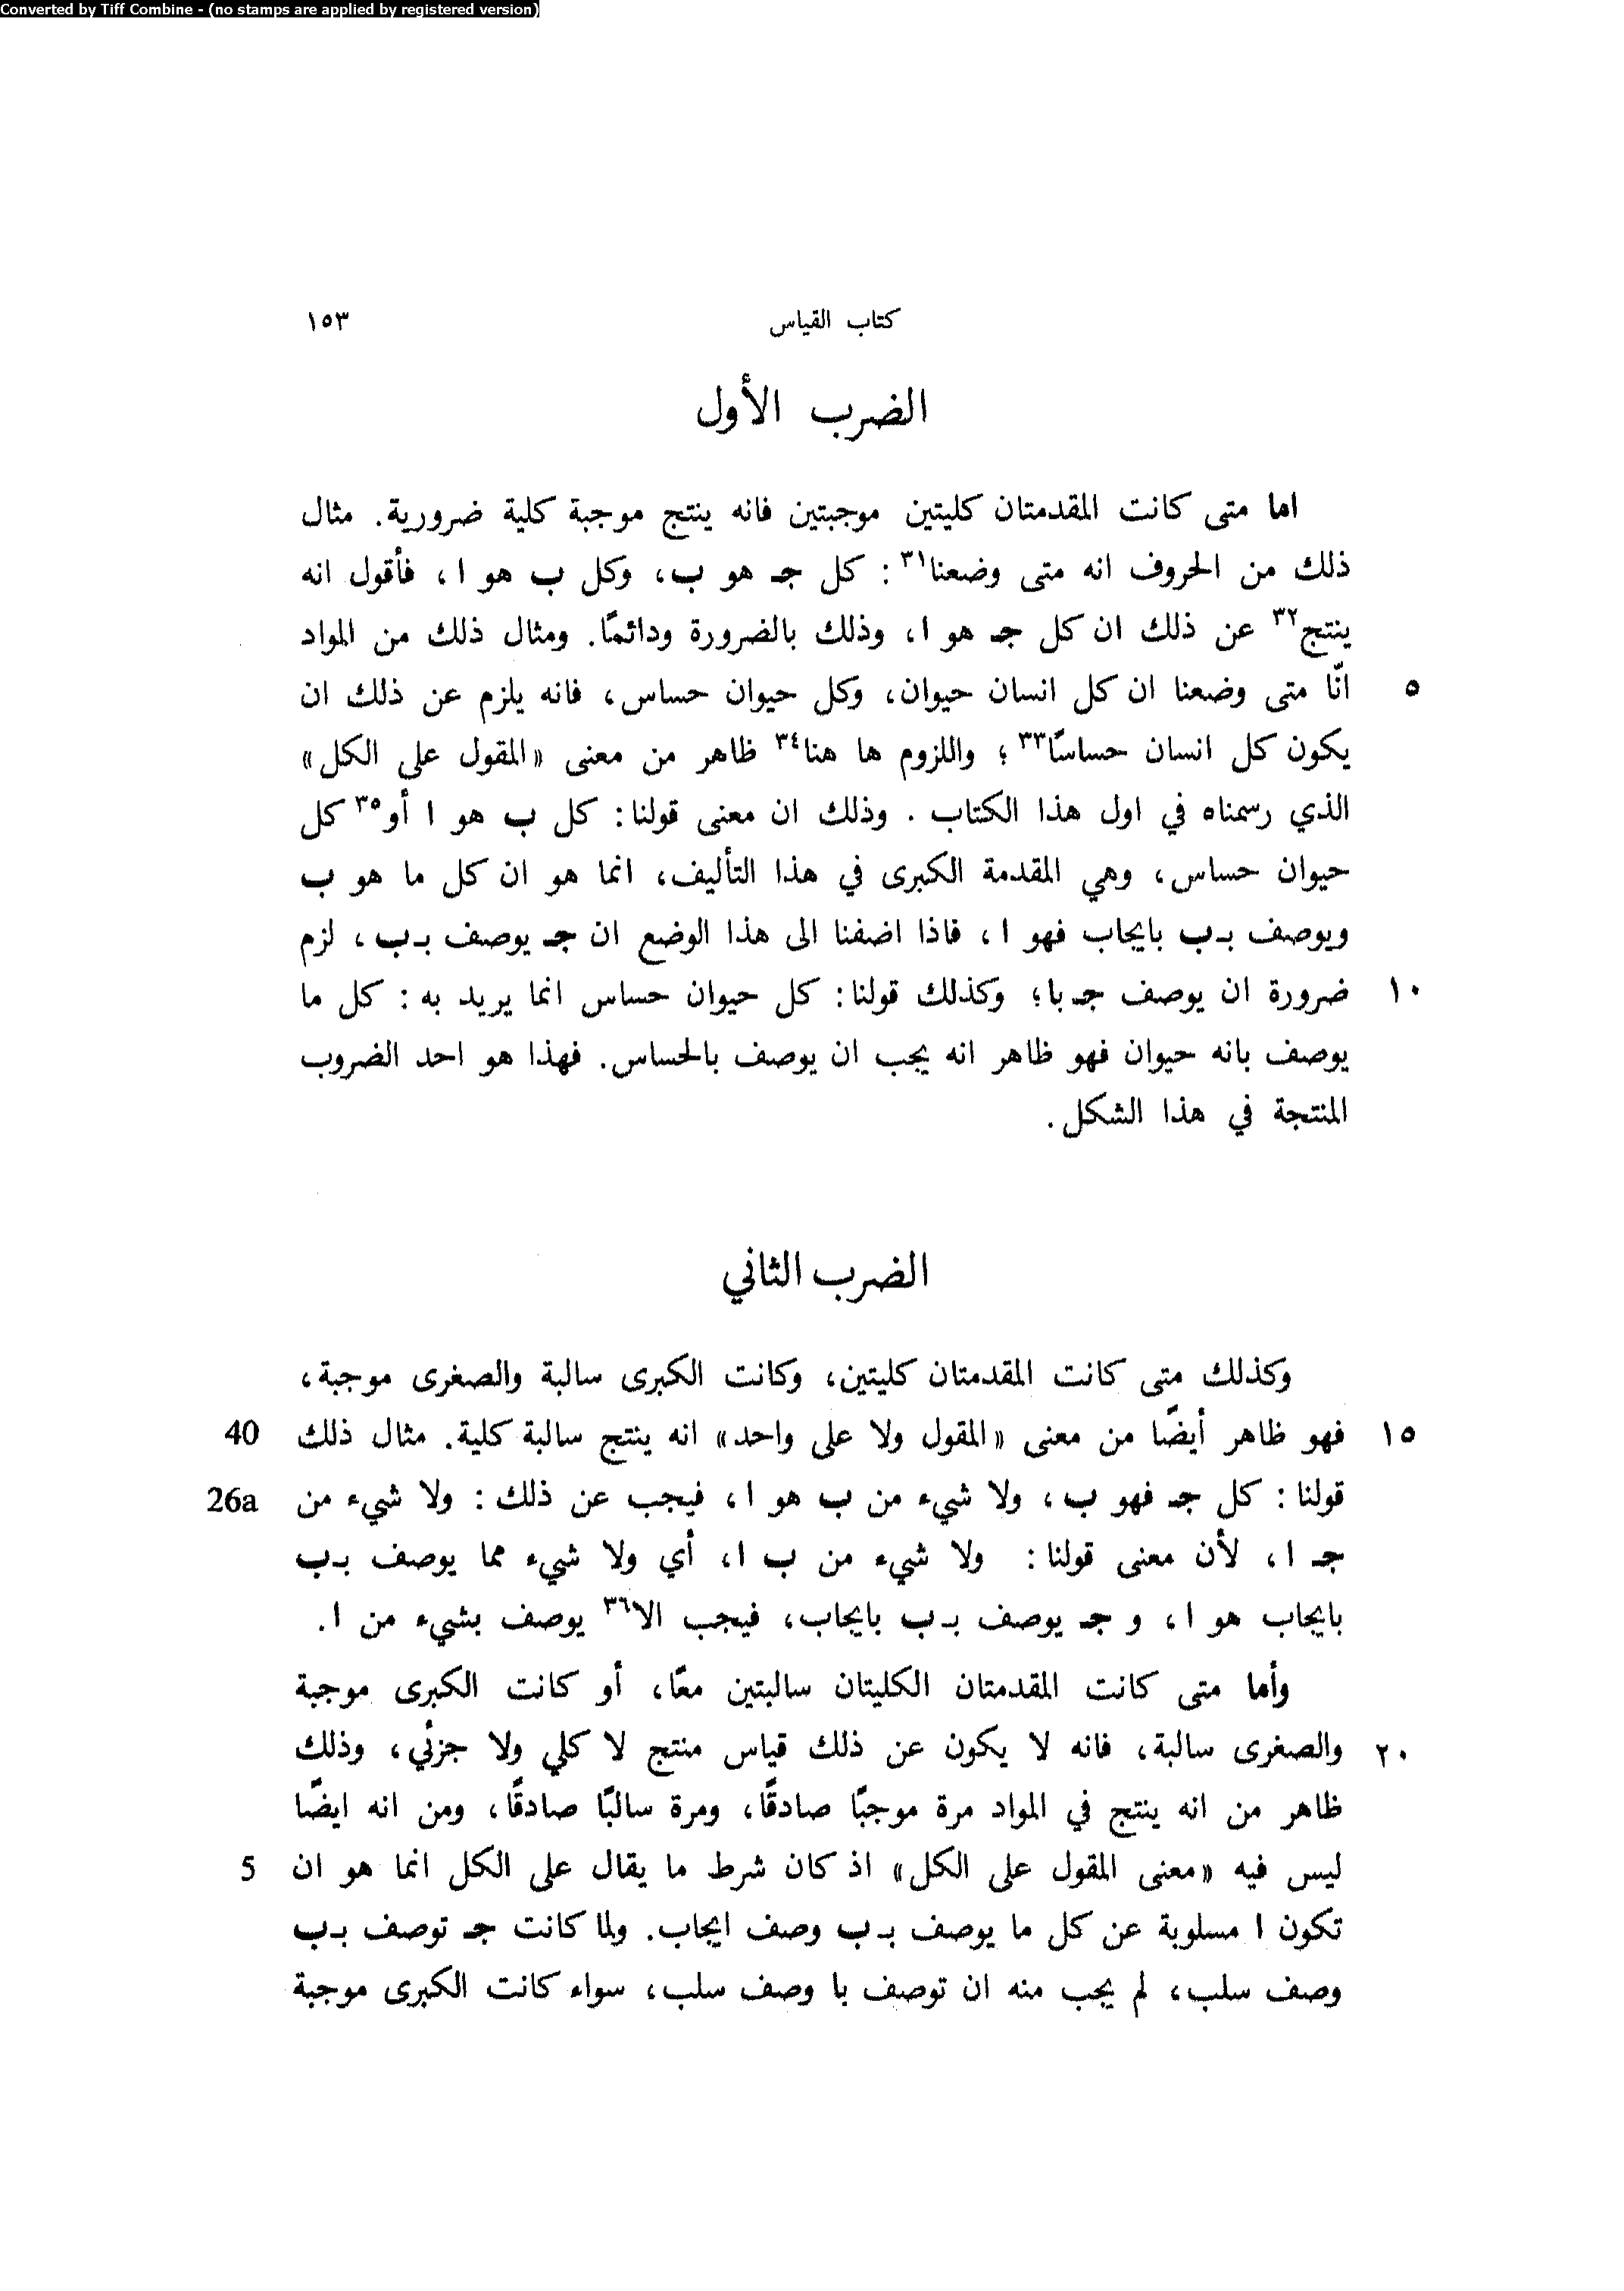 Converted by Tiff Combine - (no stamps are applied by registered version)
كتاب القياس ١٥٣
الضرب الأول
اما متى كانت المقدمتان كليتين موجبتين فانه ينتج موجبة كلية ضرورية. مثال
ذلك من الحروف انه متى وضعنا٣١ : كل جـ هو ب، وكل ب هو ا، فأقول انه
ينتج٣٢ عن ذلك ان كل جـ هو ا، وذلك بالضرورة ودائمًا. ومثال ذلك من المواد
٥ انّا متى وضعنا ان كل انسان حيوان، وكل حيوان حساس، فانه يلزم عن ذلك ان
يكون كل انسان حساسًا٣٣ ؛ واللزوم ها هنا٣٤ ظاهر من معنى «المقول على الكل»
الذي رسمناه في اول هذا الكتاب . وذلك ان معنى قولنا: كل ب هو ا أو٣٥ كل
حيوان حساس، وهي المقدمة الكبرى في هذا التأليف، انما هو ان كل ما هو ب
ويوصف بـ ب بايجاب فهو ا، فاذا اضفنا الى هذا الوضع ان جـ يوصف بـ ب، لزم
١٠ ضرورة ان يوصف جـ با؛ وكذلك قولنا: كل حيوان حساس انما يريد به : كل ما
يوصف بانه حيوان فهو ظاهر انه يجب ان يوصف بالحساس. فهذا هو احد الضروب
المنتجة في هذا الشكل.
الضرب الثاني
وكذلك متى كانت المقدمتان كليتين، وكانت الكبرى سالبة والصغرى موجبة،
١٥ فهو ظاهر أيضًا من معنى «المقول ولا على واحد» انه ينتج سالبة كلية. مثال ذلك 40
قولنا : كل جـ فهو ب، ولا شيء من ب هو ا، فيجب عن ذلك : ولا شيء من 26a
جـ ا، لأن معنى قولنا : ولا شيء من ب ا، أي ولا شيء مما يوصف بـ ب
بايجاب هو ا، و جـ يوصف بـ ب بايجاب، فيجب الا٣٦ يوصف بشيء من ا.
وأما متى كانت المقدمتان الكليتان سالبتين معًا، أو كانت الكبرى موجبة
٢٠ والصغرى سالبة، فانه لا يكون عن ذلك قياس منتج لا كلي ولا جزئي، وذلك
ظاهر من انه ينتج في المواد مرة موجبًا صادقًا، ومرة سالبًا صادقًا، ومن انه ايضًا
ليس فيه «معنى المقول على الكل» اذ كان شرط ما يقال على الكل انما هو ان 5
تكون ا مسلوبة عن كل ما يوصف بـ ب وصف ايجاب. ولما كانت جـ توصف بـ ب
وصف سلب، لم يجب منه ان توصف با وصف سلب، سواء كانت الكبرى موجبة